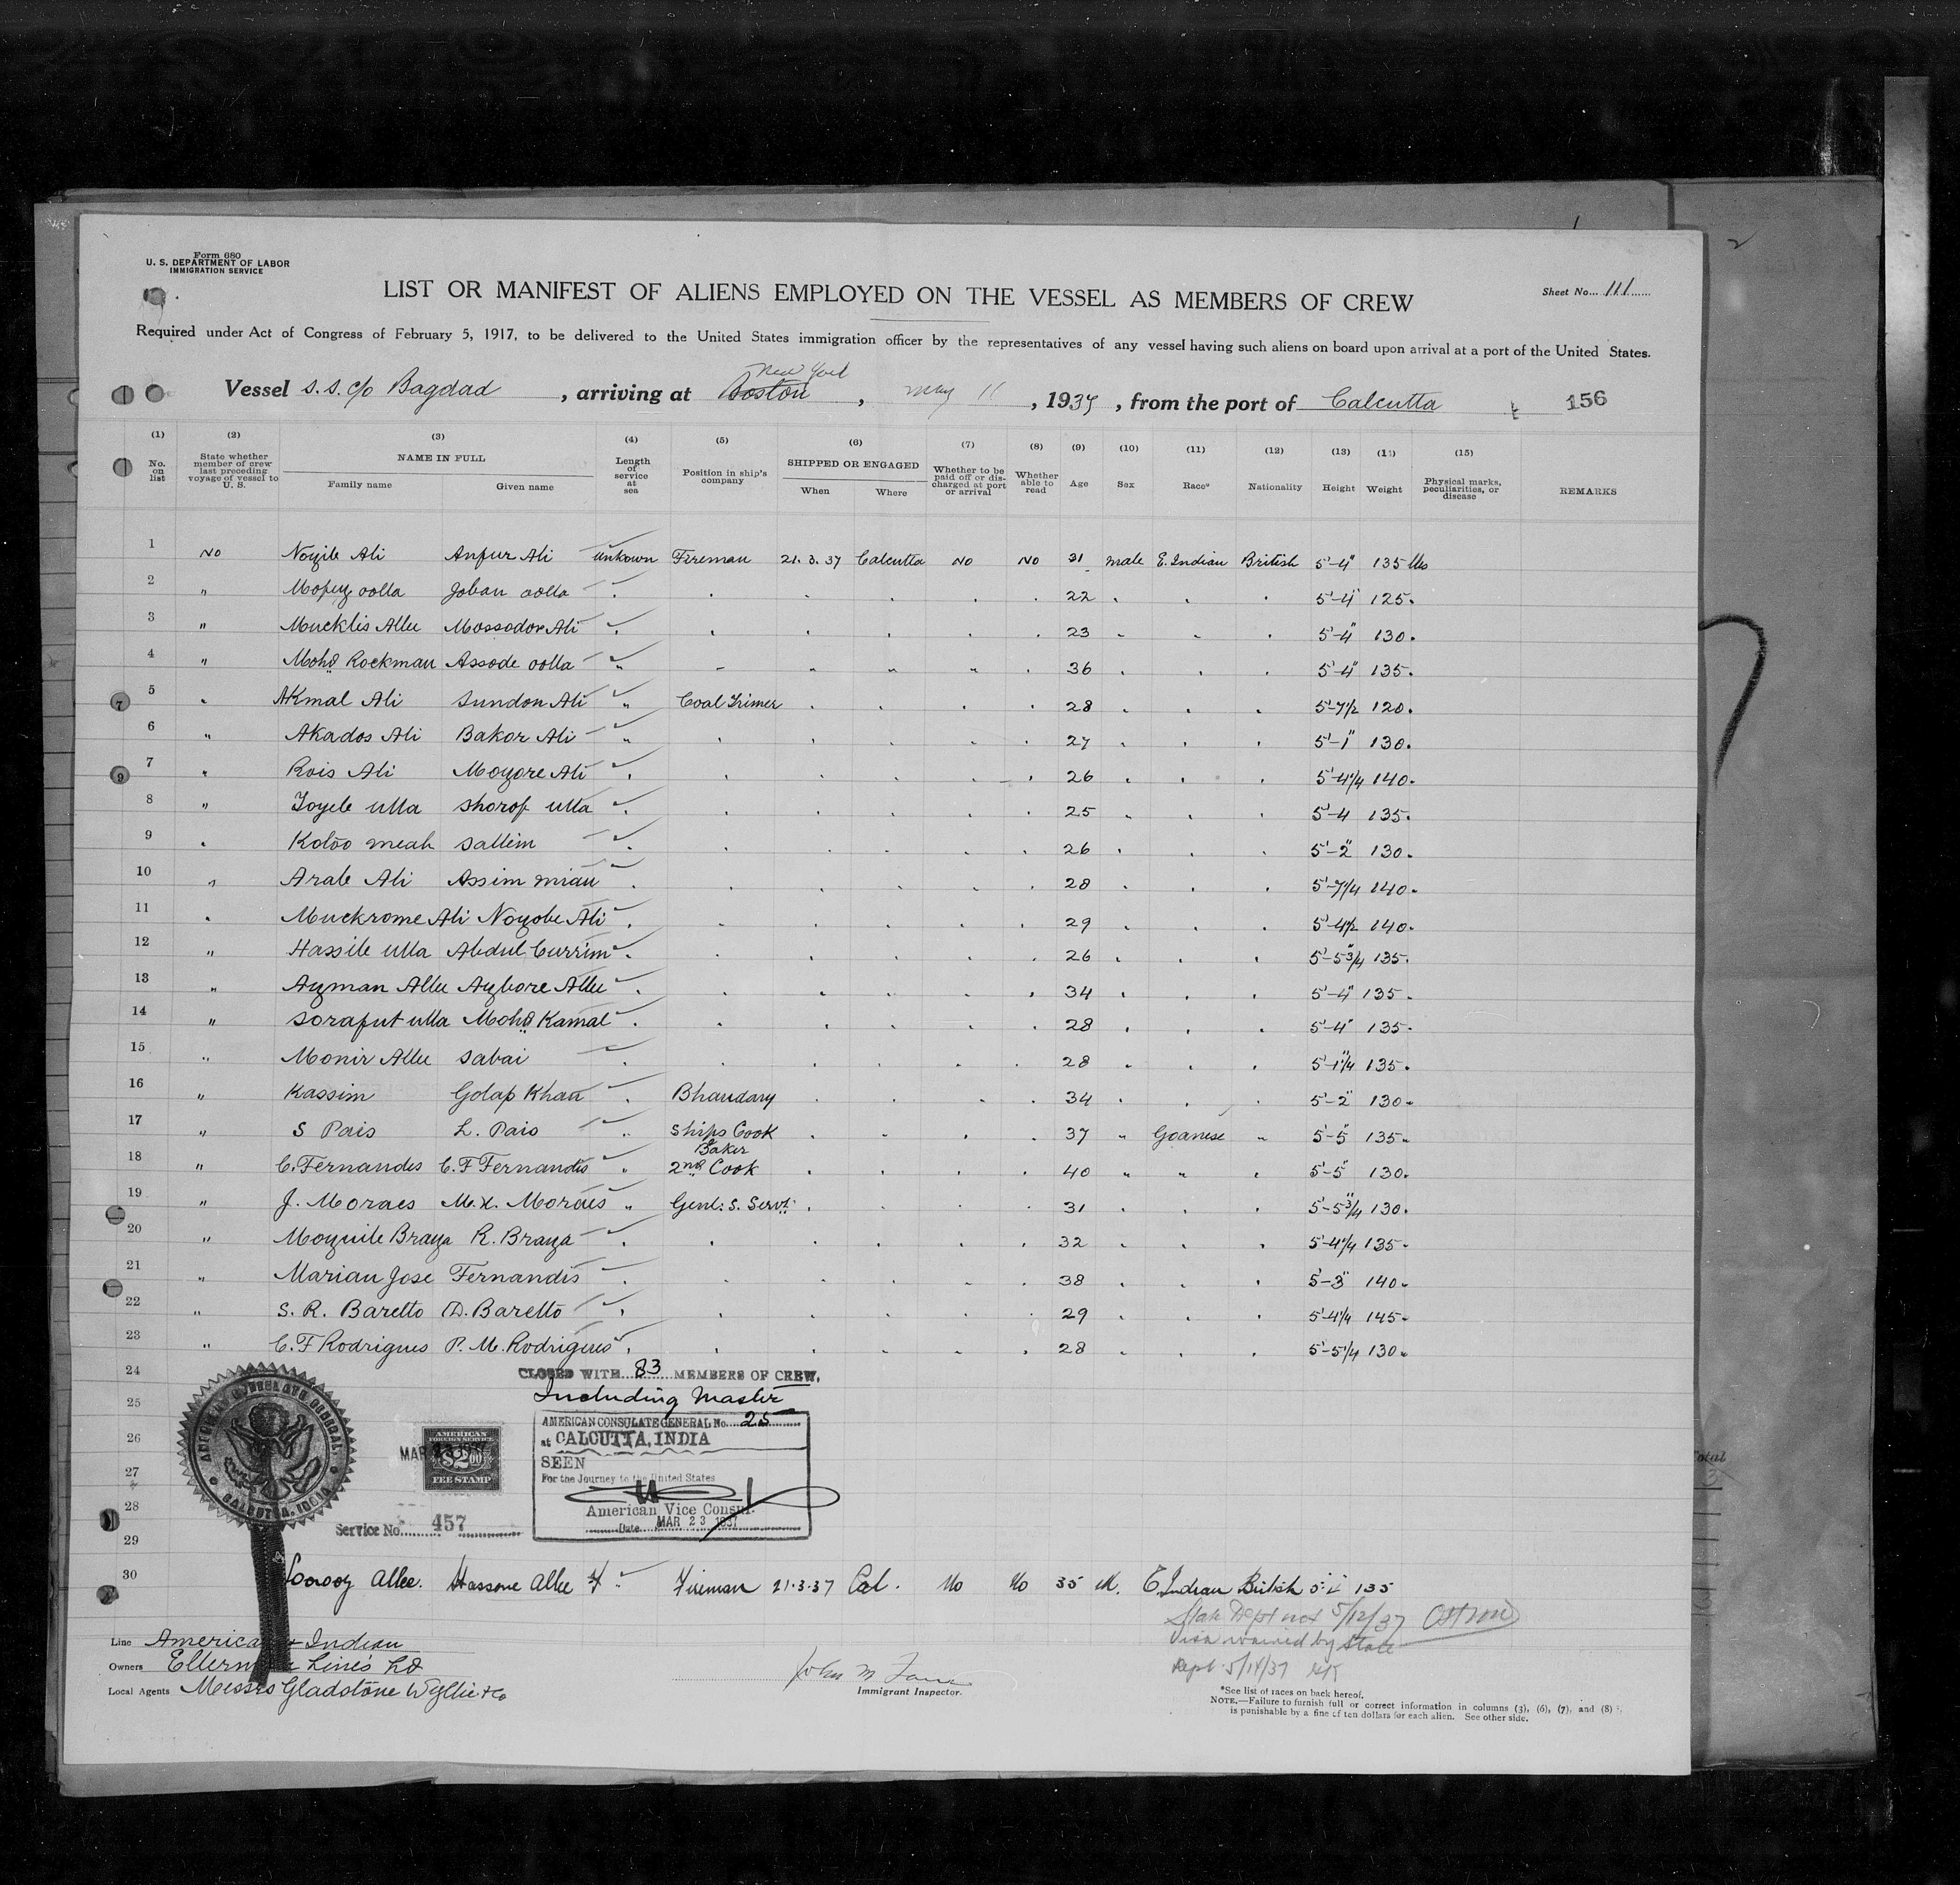 Form 680
U. S. DEPARTMENT OF LABOR
IMMIGRATION SERVICE
LIST OR MANIFEST OF ALIENS EMPLOYED ON THE VESSEL AS MEMBERS OF CREW
Sheet No. 111
Required under Act of Congress of February 5, 1917, to be delivered to the United States immigration officer by the representatives of any vessel having such aliens on board upon arrival at a port of the United States.
New York
Vessel S.S. c/o Bagdad, arriving at Boston, May 11, 1937, from the port of Calcutta 156
(1) (2) (3) (4) (5) (6) (7) (8) (9) (10) (11) (12) (13) (14) (15)
No. on list State whether member of crew last preceding voyage of vessel to U. S. NAME IN FULL Family name Given name Length of service at sea Position in ship's company SHIPPED OR ENGAGED When Where Whether to be paid off or discharged at port or arrival Whether able to read Age Sex Race* Nationality Height Weight Physical marks, peculiarities, or disease REMARKS
1 No Noyile Ali Anfur Ali unkown Fireman 21.3.37 Calcutta No No 31 male E.Indian British 5'-4" 135 lbs
2 " Mofuz oolla Joban oolla " 22 5'-4" 125
3 " Mucklis Allee Mossodor Ali " 23 5'-4" 130
4 " Mohd Rockman Assode oolla " 36 5'-4" 135
5 " Akmal Ali Sundon Ali " Coal Trimer 28 5'-7½ 120
6 " Akados Ali Bakor Ali " 27 5'-1" 130
7 " Rois Ali Moyore Ali " 26 5'-4¼ 140
8 " Toyeb ulla Shorof ulla " 25 5'-4 135
9 " Koloo meah Sallim " 26 5'-2" 130
10 " Arab Ali Assim mian " 28 5'-7¼ 140
11 " Muckrome Ali Noyobe Ali " 29 5'-4½ 140
12 " Hassib ulla Abdul Currim " 26 5'-5¾ 135
13 " Ayman Allee Aybore Allee " 34 5'-4" 135
14 " Soraput ulla Mohd Kamal " 28 5'-4" 135
15 " Monir Allee Sabai " 28 5'-1¼ 135
16 " Kassim Golap Khan " Bhandary 34 5'-2" 130
17 " S Pais L. Pais " Ships Cook 37 " Goanese " 5'-5" 135
Baker
18 " C. Fernandes C. F Fernandis " 2nd Cook 40 " " " 5'-5" 130
19 " J. Moraes M. X. Moraes " Genl: S. Servt: 31 5'-5¾ 130
20 " Moyuile Braya R. Braya " 32 5'-4¼ 135
21 " Marian Jose Fernandis " 38 5'-3" 140
22 " S. R. Baretto D. Baretto " 29 5'-4¼ 145
23 " C. F Rodrigues P. M. Rodrigues " 28 5'-5¼ 130
24
CLOSED WITH 83 MEMBERS OF CREW.
Including Master
25
AMERICAN CONSULATE GENERAL No. 25
26
at CALCUTTA, INDIA
SEEN
27
For the Journey to the United States
28
American Vice Consul
Date MAR 23 1937
29
AMERICAN CONSULATE GENERAL CALCUTTA, INDIA
MAR 23 1937
AMERICAN FOREIGN SERVICE $2.00 FEE STAMP
Service No. 457
30 Allee. Hassone Allee Fireman 21.3.37 Cal. No No 35 M. E.Indian British 135
State Dept not 5/12/37
Visa waived by State
Dept. 5/14/37
Line American & Indian
Owners Ellerman Lines Ld
Local Agents Messrs Gladstone Wyllie & Co
John M
Immigrant Inspector.
*See list of races on back hereof.
NOTE.—Failure to furnish full or correct information in columns (3), (6), (7), and (8)
is punishable by a fine of ten dollars for each alien. See other side.